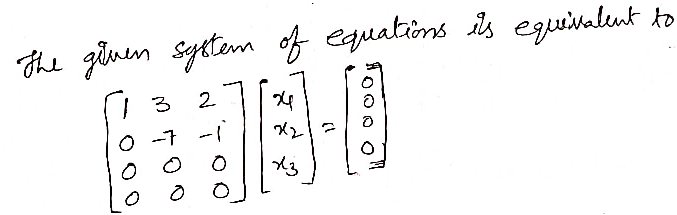 The given system of equations is equivalent to
[1 3 2] [x1] = [0]
[0 -7 -1] [x2] [0]
[0 0 0] [x3] [0]
[0 0 0] [0]